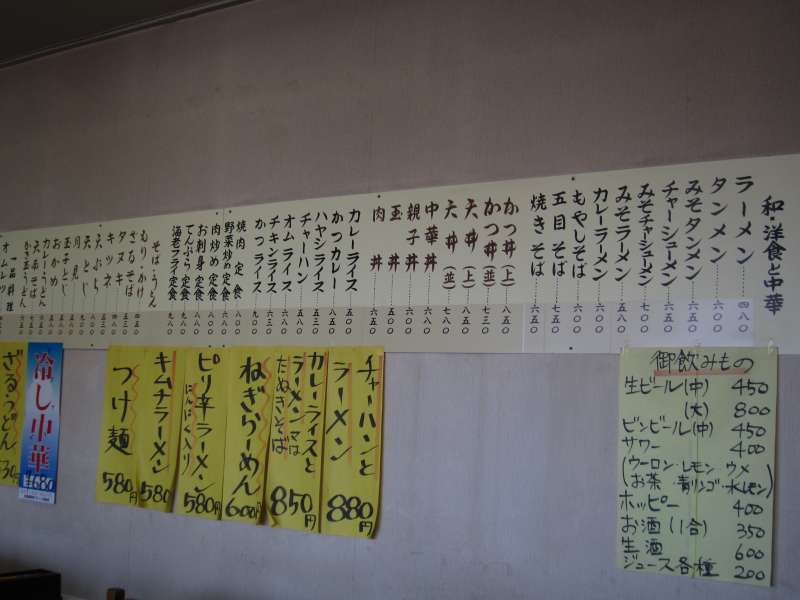 和・洋食と中華
ラーメン 四八〇
タンメン 六〇〇
みそタンメン 六五〇
チャーシューメン 六五〇
みそチャーシューメン 七〇〇
みそラーメン 五八〇
カレーラーメン 六五〇
もやしそば 六〇〇
五目そば 六五〇
焼きそば 六五〇
かつ丼(上) 八五〇
かつ丼(並) 七三〇
天丼(上) 八五〇
天丼(並) 七八〇
中華丼 六五〇
親子丼 六五〇
玉丼 六〇〇
肉丼 六五〇
カレーライス 五五〇
かつカレー 八〇〇
ハヤシライス
チャーハン 五八〇
オムライス 六五〇
チキンライス 六三〇
かつライス
焼肉定食
野菜炒め定食
肉炒め定食
お刺身定食
てんぷら定食
海老フライ定食
そば・うどん
もり・かけ
ざるそば
タヌキ
キツネ
天ぷら
天とじ
月見
玉子とじ
おかめ
カレーうどん
天ぷらそば
かき玉うどん
一品料理
オムレツ
チャーハンと
ラーメン 880円
カレーライスと
ラーメン又は
たぬきそば 850円
ねぎらーめん 600円
ピリ辛ラーメン
にんにく入り 580円
キムチラーメン 580
つけ麺 580円
冷し中華
ざるうどん
御飲みもの
生ビール(中) 450
(大) 800
ビンビール(中) 450
サワー 400
(ウーロン・レモン ウメ
お茶・青リンゴ・水レモン)
ホッピー 400
お酒(1合) 350
生酒 600
ジュース各種 200